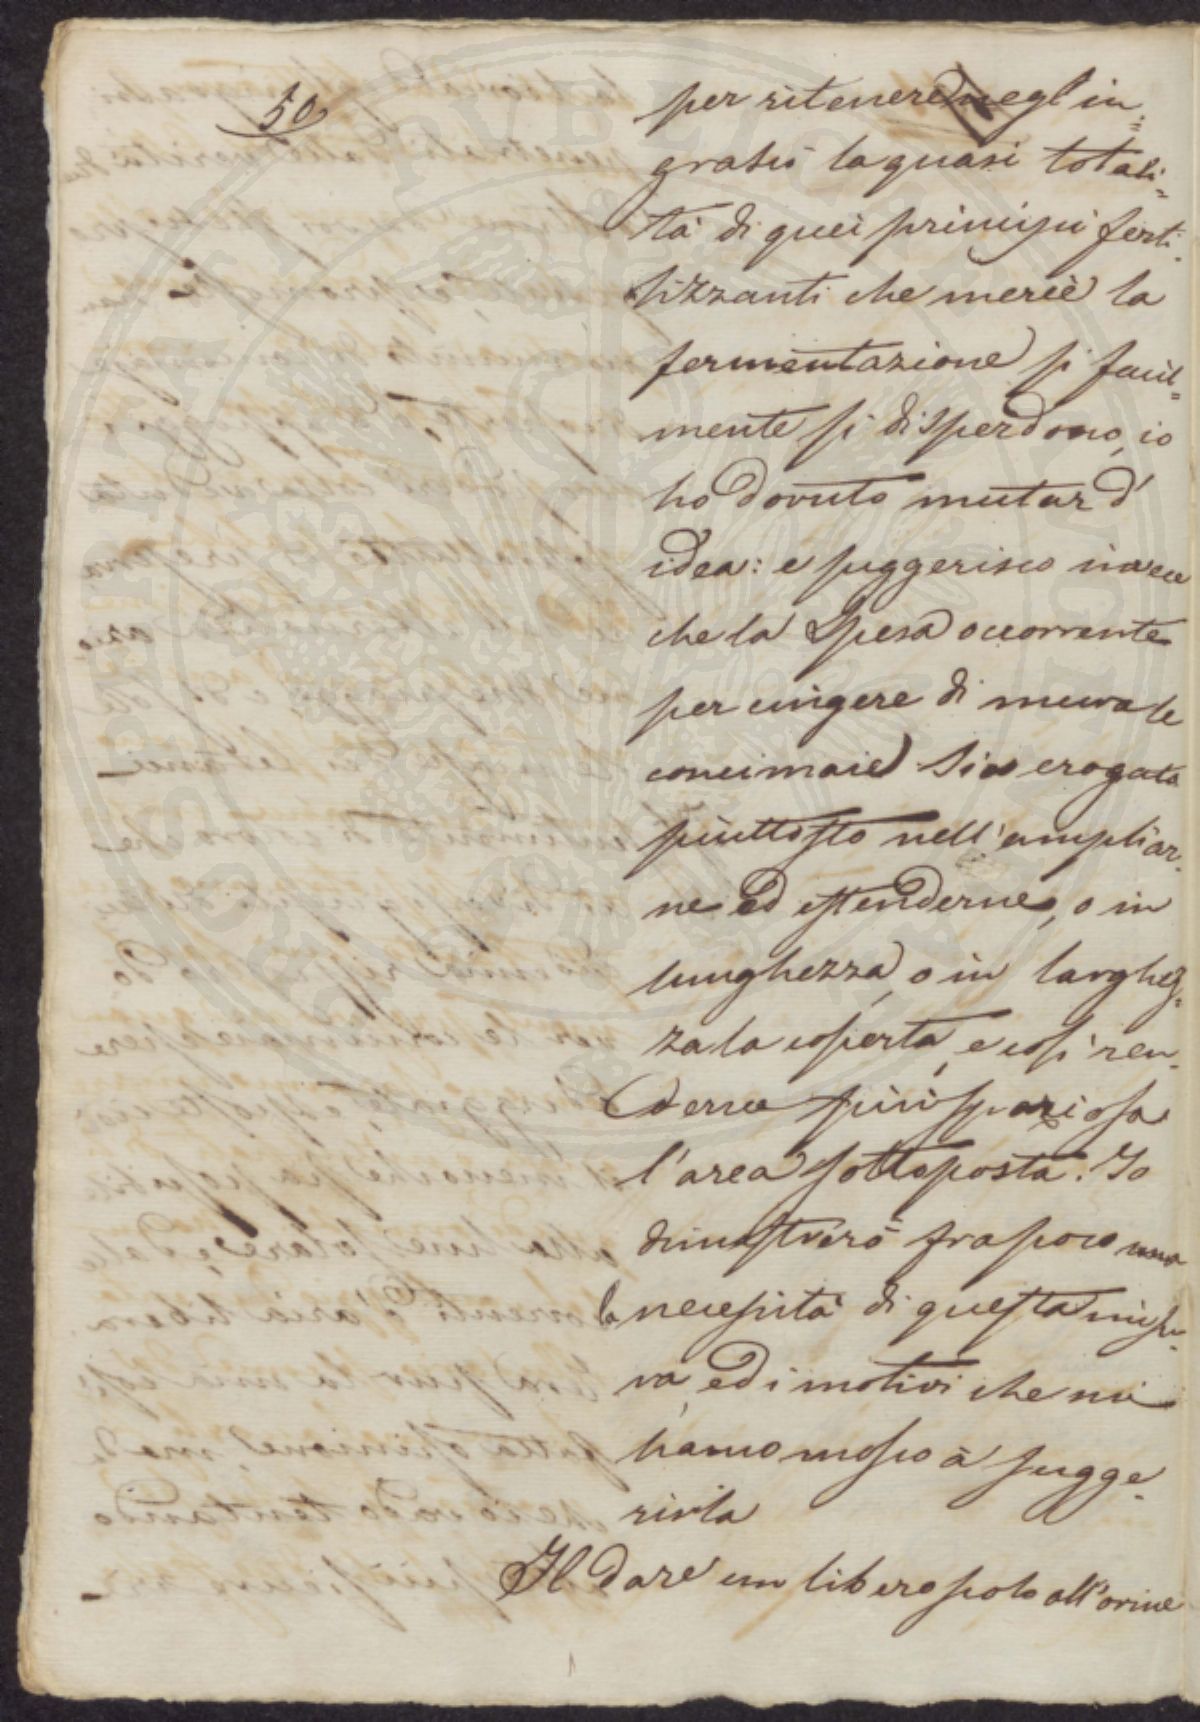 50
per ritenere negl'in=
grassi la quasi totali=
tà di quei principii ferti-
lizzanti che mercè la
fermentazione si facil=
mente si disperdono, io
ho dovuto mutar d'
idea: e suggerisco invece
che la Spesa occorrente
per cingere di mura le
concimaie sia erogata
piuttosto nell'ampliar-
ne ed estenderne, o in
lunghezza, o in larghez=
za la coperta, e così ren-
derne più spaziosa
l'area sottoposta. Io
dimostrerò fra poco
la necessità di questa misu-
ra, ed i motivi che mi
hanno mosso à sugge-
rirla
Il dare un libero scolo all'orine